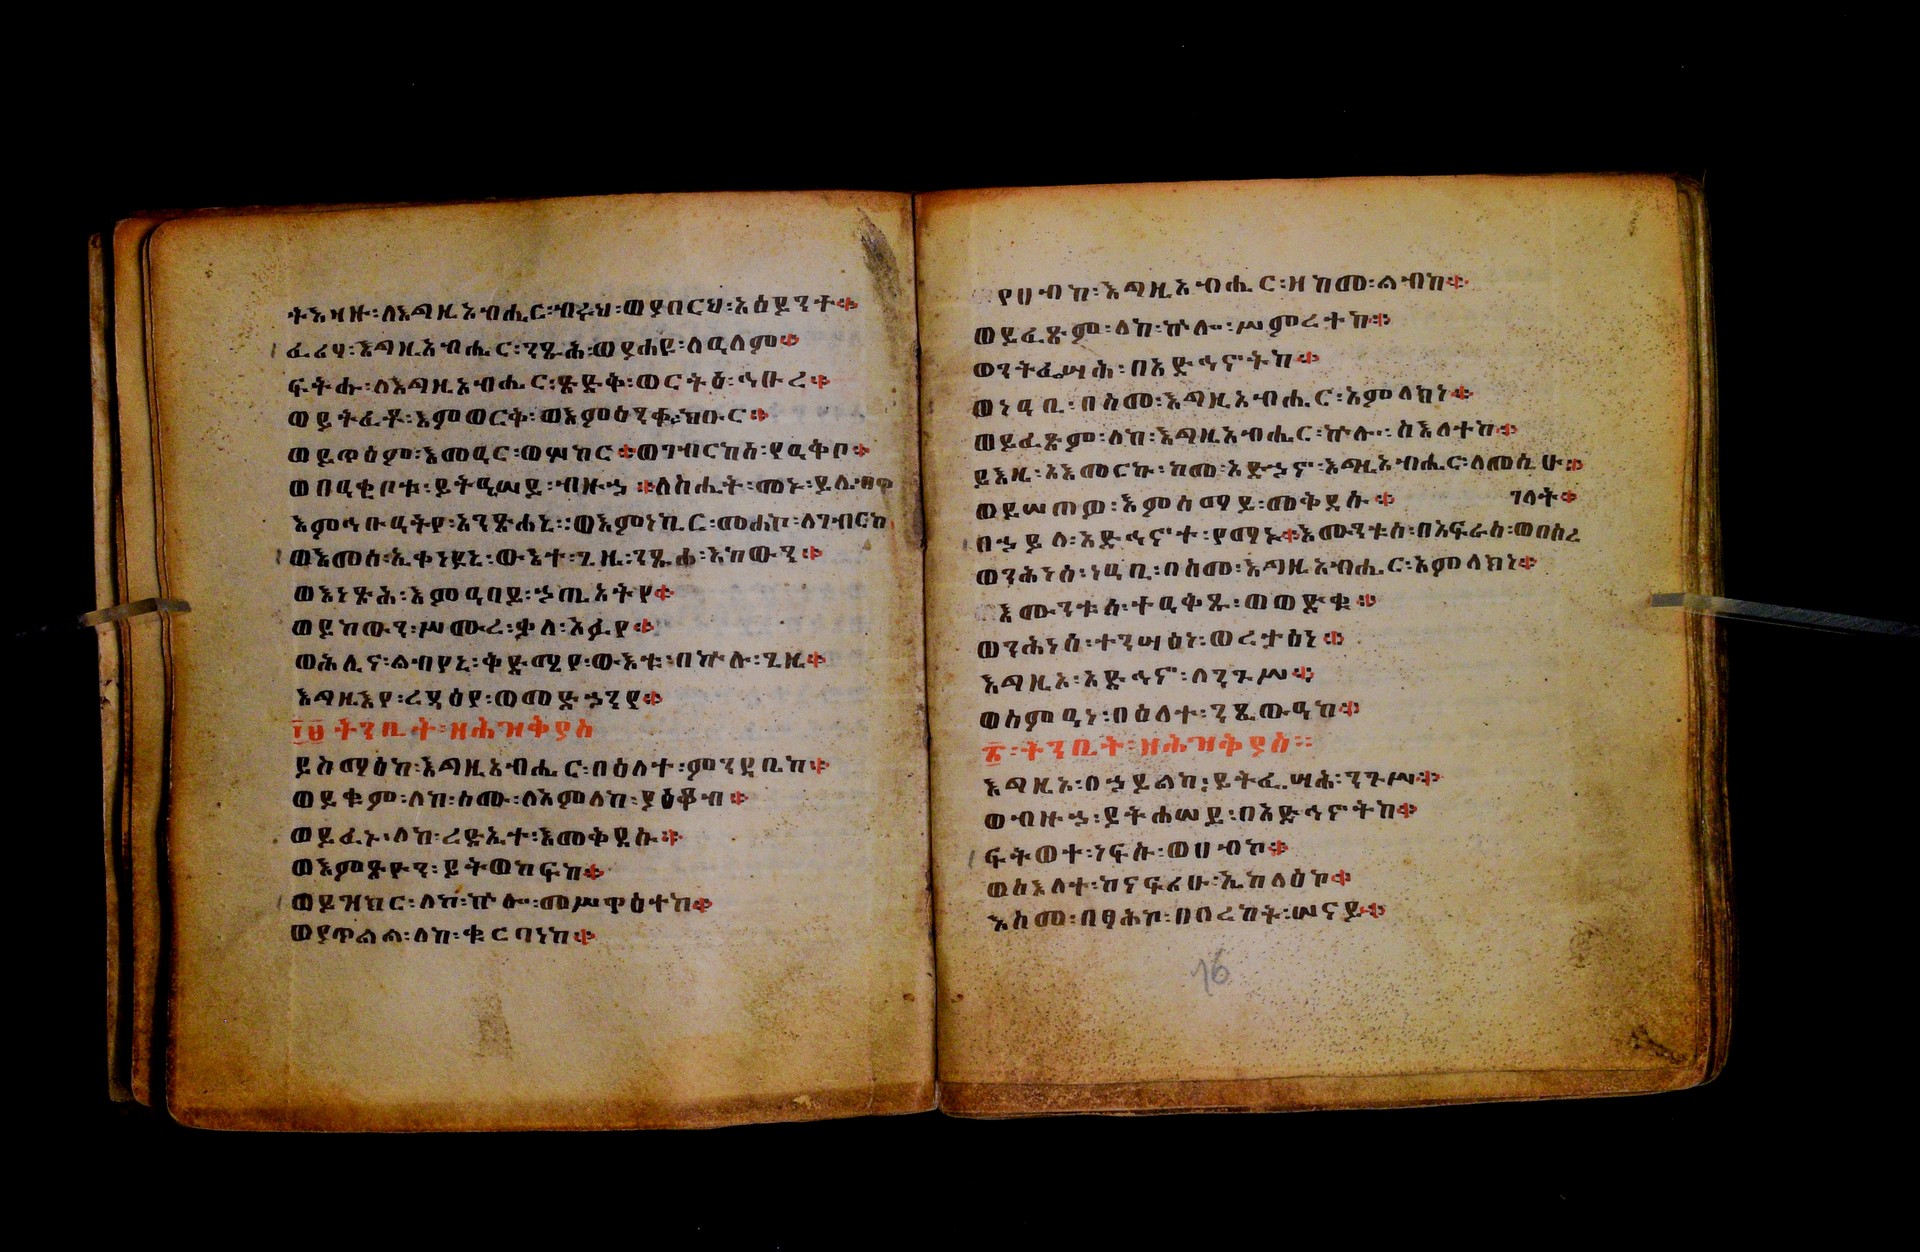 ትእዛዙ፡ለእግዚአብሔር፡ብሩህ፡ወያበርህ፡አዕይንተ።
ፈሪሃ፡እግዚአብሔር፡ንጹሕ፡ወይሔዩ፡ለዓለም።
ፍትሑ፡ለእግዚአብሔር፡ጽድቅ፡ወርትዕ፡ኅቡረ።
ወይትፈቶ፡እምወርቅ፡ወእምዕንቍ፡ክቡር።
ወይጥዕም፡እመዓር፡ወሦከር።ወገብርከሰ፡የዓቅቦ።
ወበዓቂቦቱ፡ይትዔሠይ፡ብዙኃ።ለስሒት፡መኑ፡ይሌብዋ
እምኅቡዓትየ፡አንጽሐኒ።ወእምነኪር፡መሐኮ፡ለገብርከ
ወእመሰ፡ኢቀነዩኒ፡ውእተ፡ጊዜ፡ንጹሐ፡እከውን።
ወእነጽሕ፡እምዓባይ፡ኃጢአትየ።
ወይከውን፡ሥሙረ፡ቃለ፡አፉየ።
ወሕሊና፡ልብየኒ፡ቅድሜየ፡ውእቱ፡በኵሉ፡ጊዜ።
እግዚእየ፡ረዳዕየ፡ወመድኃንየ።
፲፱ትንቢት፡ዘሕዝቅያስ
ይስማዕከ፡እግዚአብሔር፡በዕለተ፡ምንዳቤከ።
ወይቁም፡ለከ፡ስሙ፡ለአምላከ፡ያዕቆብ።
ወይፈኑ፡ለከ፡ረድኤተ፡እመቅደሱ።
ወእምጽዮን፡ይትወከፍከ።
ወይዝክር፡ለከ፡ኵሎ፡መሥዋዕተከ።
ወያጥልል፡ለከ፡ቁርባነከ።
የሀብከ፡እግዚአብሔር፡ዘከመ፡ልብከ።
ወይፈጽም፡ለከ፡ኵሎ፡ሥምረተከ።
ወንትፌሣሕ፡በአድኅኖትከ።
ወነዓቢ፡በስመ፡እግዚአብሔር፡አምላክነ።
ወይፈጽም፡ለከ፡እግዚአብሔር፡ኵሎ፡ስእለተከ።
ይእዜ፡አእመርኩ፡ከመ፡አድኃኖ፡እግዚአብሔር፡ለመሲሁ።
ወይሠጠዎ፡እምሰማይ፡መቅደሱ።
ገላት።
በኃይለ፡አድኅኖተ፡የማኑ።እሙንቱሰ፡በአፍራስ፡ወበሰረ
ወንሕነሰ፡ነዓቢ፡በስመ፡እግዚአብሔር፡አምላክነ።
እሙንቱሰ፡ተዓቅጹ፡ወወድቁ።
ወንሕነሰ፡ተንሣዕነ፡ወረታዕነ።
እግዚኦ፡አድኅኖ፡ለንጉሥ።
ወስምዓነ፡በዕለተ፡ንጼውዓከ።
፳፡ትንቢት፡ዘሕዝቅያስ።
እግዚኦ፡በኃይልከ፡ይትፌሣሕ፡ንጉሥ።
ወብዙኃ፡ይትሐሠይ፡በአድኅኖትከ።
ፍትወተ፡ነፍሱ፡ወሀብኮ።
ወስእለተ፡ከናፍሪሁ፡ኢከላዕኮ።
እስመ፡በፃሕኮ፡በበረከት፡ሠናይ።
76